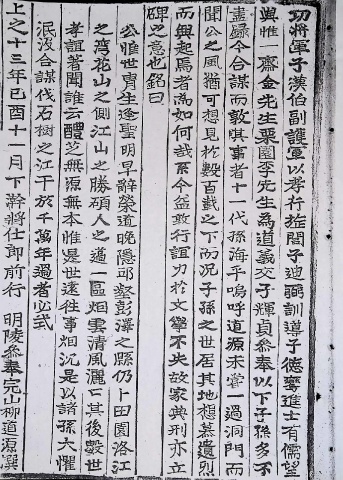 功將軍子漢伯副護軍以孝行旌閭子迪弼訓導子德騫進士有儒望
與惟一齋金先生栗園李先生為道義交子輝貞參奉以下子孫多不
盡錄今合謀而敦事者十一代孫海平嗚呼道源未嘗一過洞門而
聞公之風猶可想見於數百載之下而況子孫之世居其地想慕遺烈
而興起焉者為如何哉系今益敦行誼力於文學不失故家典刑亦立
碑之意也銘曰
公惟世胄生逢聖明早辭榮道晚隱邱壑彭澤之縣仍卜田園洛江
之灣花山之側江山之勝碩人之薖一區烟雲清風灑灑其後數世
孝誼著聞誰云醴芝無源無本惟是世遠往事烟沉是以諸孫大懼
泯沒合謀伐石樹之江干於千萬年過者必式
上之十三年己酉十一月下澣將仕郎前行 明陵參奉完山柳道源撰